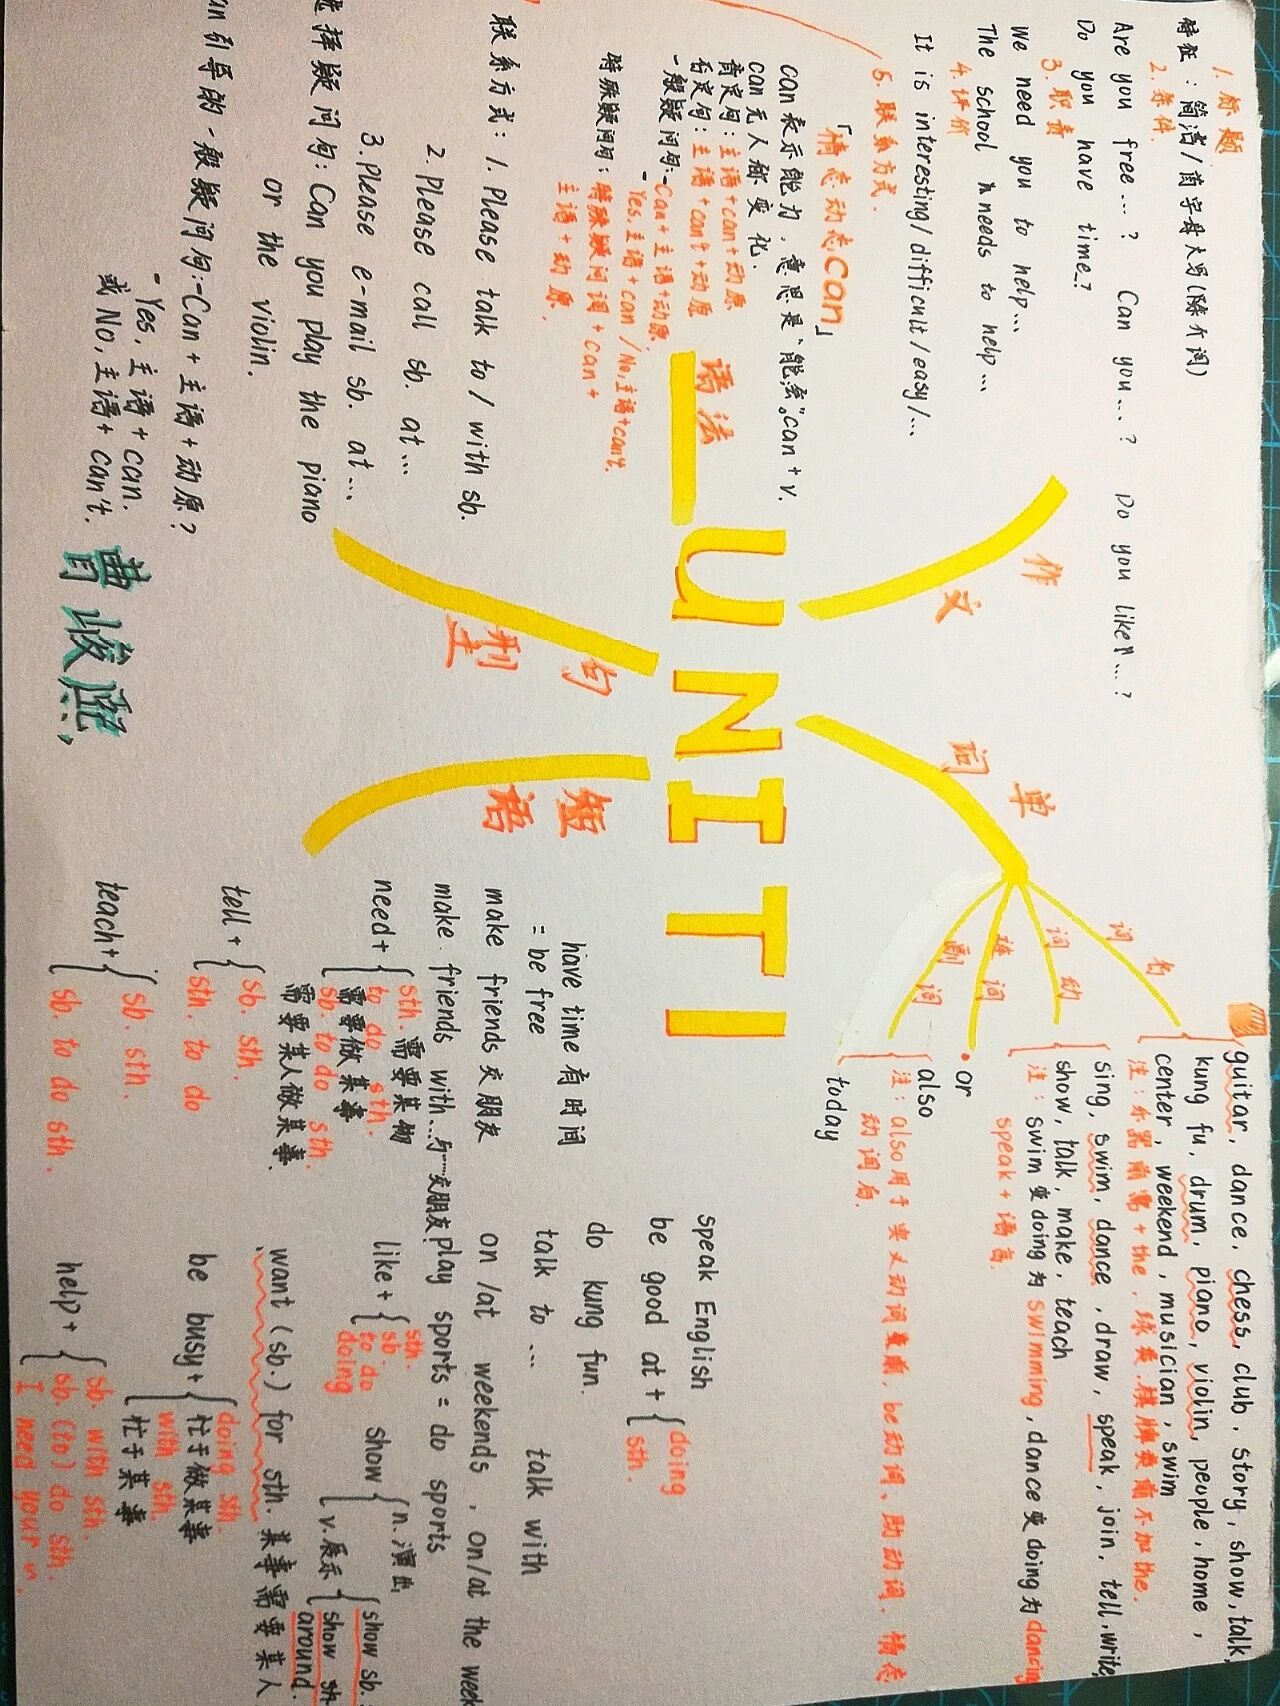 UNIT1
作文
1.标题
特征：简洁/首字母大写(除介词)
2.条件.
Are you free…? Can you…? Do you like…?
Do you have time?
3.职责
We need you to help…
The school needs to help…
4.评价
It is interesting/difficult/easy/…
5.联系方式.
语法
「情态动态can」
can表示能力，意思是“能，会”。can+v.
can无人称变化.
肯定句：主语+can+动原
否定句：主语+can't+动原
一般疑问句：-Can+主语+动原.
-Yes,主语+can/No,主语+can't.
特殊疑问句：特殊疑问词+can+
主语+动原.
句型
联系方式：1.Please talk to/with sb.
2.Please call sb. at…
3.Please e-mail sb. at…
选择疑问句：Can you play the piano
or the violin.
an引导的一般疑问句:-Can+主语+动原?
-Yes,主语+can.
或No,主语+can't.
曹峻熙
单词
名词
guitar, dance, chess, club, story, show, talk,
kung fu, drum, piano, violin, people, home,
center, weekend, musician, swim
注：乐器前需+the，球类.棋牌类前不加the.
动词
sing, swim, dance, draw, speak, join, tell, write,
show, talk, make, teach
注：swim变doing为swimming, dance变doing为dancing
speak+语言.
连词
or
副词
also
注：also用于实义动词之前，be动词、助动词、情态
动词后.
today
短语
have time 有时间
= be free
make friends 交朋友
make friends with…与…交朋友
need+ sth. 需要某物
to do sth.
需要做某事
sb. to do sth.
需要某人做某事.
tell+ sb. sth.
sth. to do
teach+ sb. sth.
sb. to do sth.
speak English
be good at+ doing
sth.
do kung fun.
talk to… talk with
on/at weekends, on/at the week
play sports = do sports
like+ sth.
sb.
to do
doing
show n.演出
v.展示 show sb.
show sh
around.
want (sb.) for sth. 某事需要某人
be busy+ doing sth.
忙于做某事
with sth.
忙于某事
help+ sb. with sth.
sb. (to) do sth.
I need your